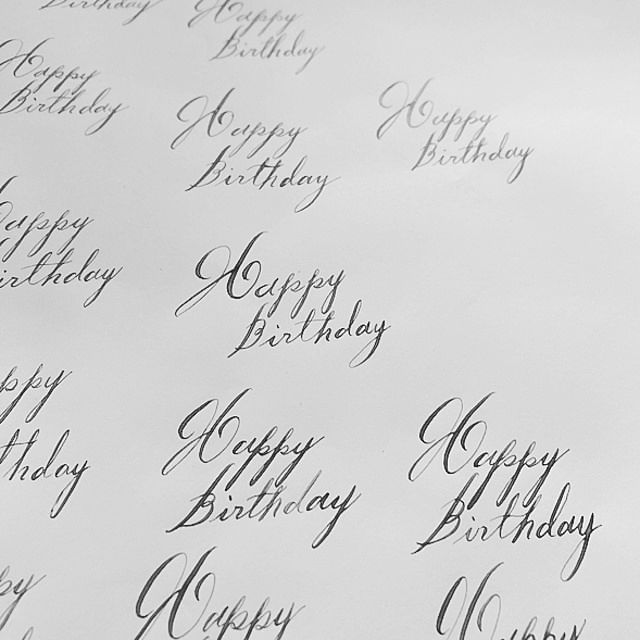 Birthday
Happy
Birthday
Happy
Birthday
Happy
Birthday
Happy
Birthday
Happy
Birthday
Happy
Birthday
Happy
Birthday
Happy
Birthday
Happy
Happy